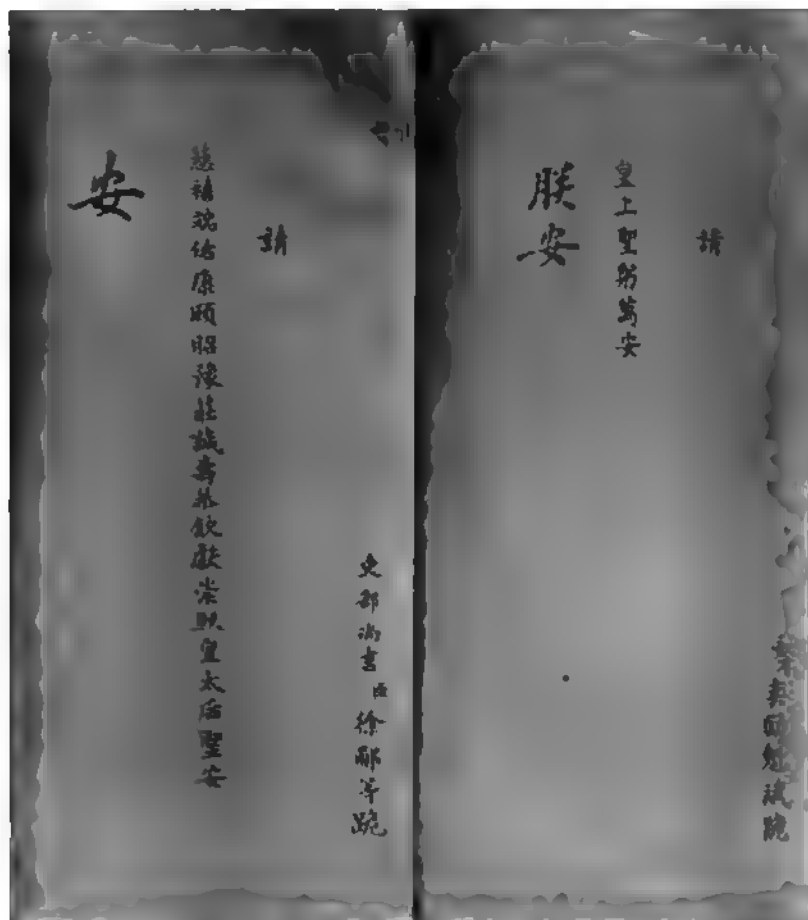 請
皇上聖躬萬安
朕安
吏部尚書臣徐郙等跪
請
慈禧端佑康頤昭豫莊誠壽恭欽獻崇熙皇太后聖安
安